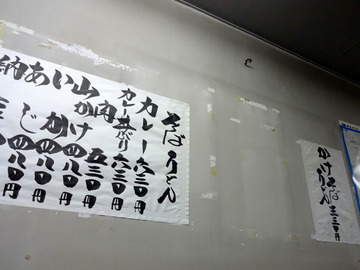 そばうどん
カレー 六三〇円
カレー丼 六三〇円
肉 五三〇円
山かけ 四八〇円
いか 四八〇円
あじ 四八〇円
納
かけそばうどん 三三〇円